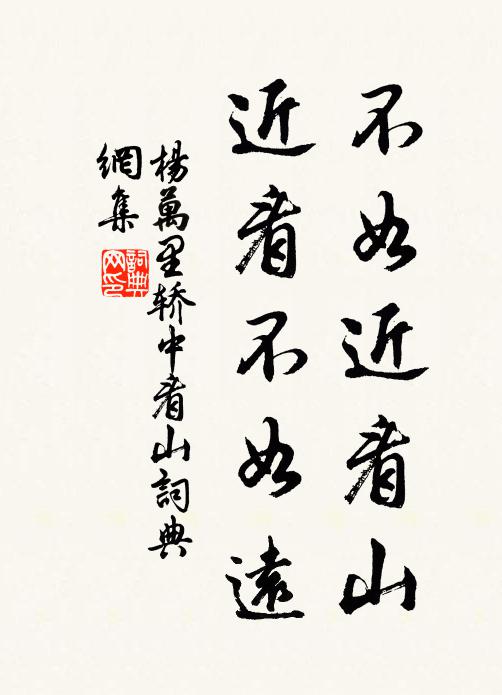 不如近看山
近看不如遠
楊萬里轿中看山詞典
網集
詞典
网印